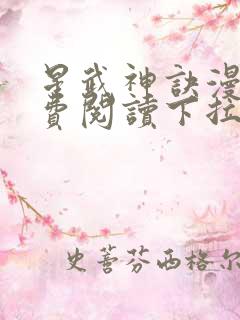 星武神訣漫
費閱讀下拉
史蒂芬西格尔